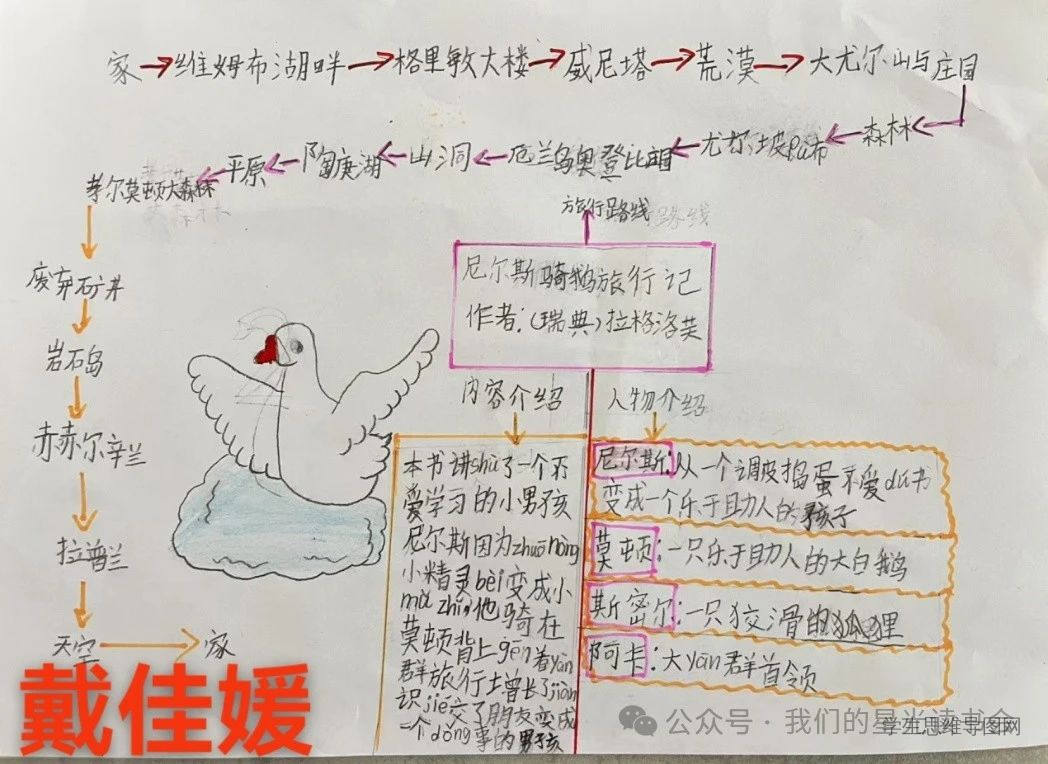 家→维姆布湖畔→格里敏大楼→威尼塔→荒漠→大尤尔山与庄园
森林
尤尔坡pù布
厄兰乌奥登比
山洞
陶庚湖
平原
孝尔莫顿大森林
废弃矿井
岩石岛
赤赤尔辛兰
拉普兰
天空→家
旅行路线
尼尔斯骑鹅旅行记
作者:(瑞典)拉格洛芙
内容介绍
本书讲shù了一个不
爱学习的小男孩
尼尔斯因为zhuō nòng
小精灵bèi变成小
mǔ zhǐ,他骑在
莫顿背上gēn着yàn
群旅行增长了jiàn
识jié交了朋友变成
一个dǒng事的男孩
人物介绍
尼尔斯:从一个调皮捣蛋不爱dú书
变成一个乐于助人的孩子
莫顿:一只乐于助人的大白鹅
斯密尔:一只狡滑的狐狸
阿卡:大yàn群首领
戴佳媛
公众号·我们的星光读书会
学生思维导图网